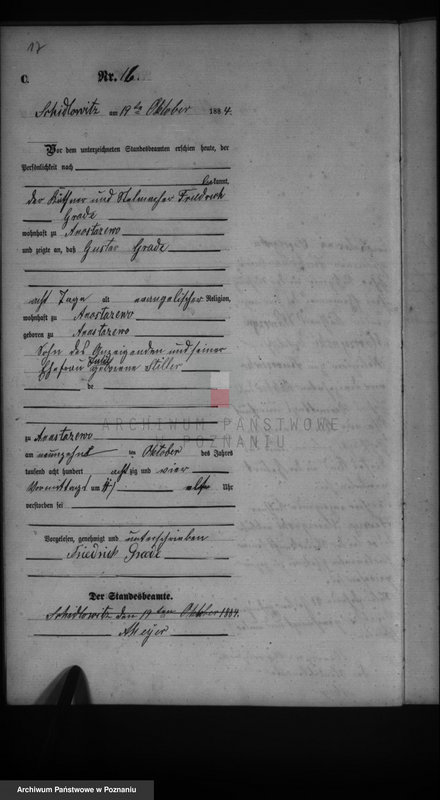 17
C.
Nr. 16.
Schidlowitz am 19ten Oktober 1884.
Vor dem unterzeichneten Standesbeamten erschien heute, der
Persönlichkeit nach
bekannt,
der Käthner und Stelmacher Friedrich
Grade
wohnhaft zu Anastazewo
und zeigte an, daß Gustav Grade
acht Tage alt evangelischer Religion,
wohnhaft zu Anastazewo
geboren zu Anastazewo
Sohn des Anzeigenden und seiner
Ehefrau geborene Stiller
zu Anastazewo
am neunzehnt ten Oktober des Jahres
tausend acht hundert achtzig und vier
Vormittags um elf Uhr
verstorben sei
Vorgelesen, genehmigt und unterschrieben
Friedrich Grade
Der Standesbeamte.
Schidlowitz den 19ten Oktober 1884.
AMeyer
ARCHIWUM PAŃSTWOWE
POZNANIU
Archiwum Państwowe w Poznaniu